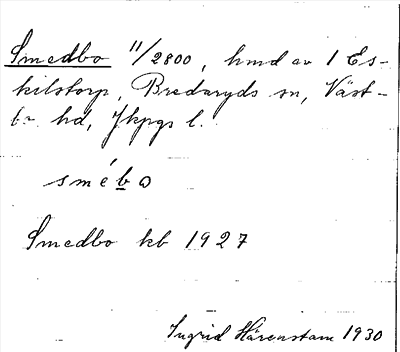 Smedbo 11/2800, hmd av 1 Es-
kilstorp, Bredaryds sn, Väst-
bo hd, Jkpgs l.
smébo
Smedbo kb 1927
Ingrid Härenstam 1930